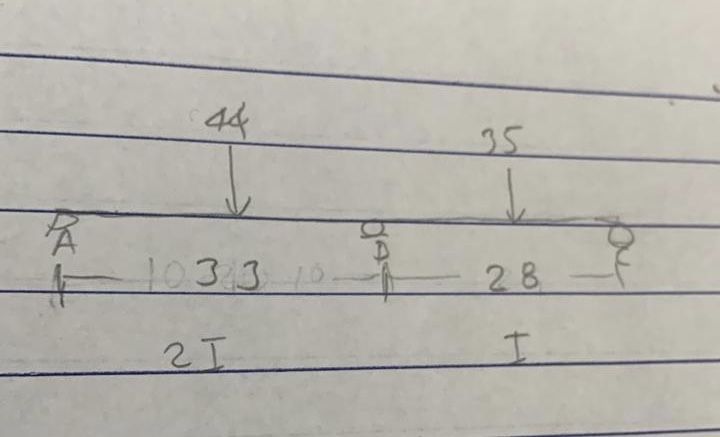 44 35
A D C
33 28
2I I